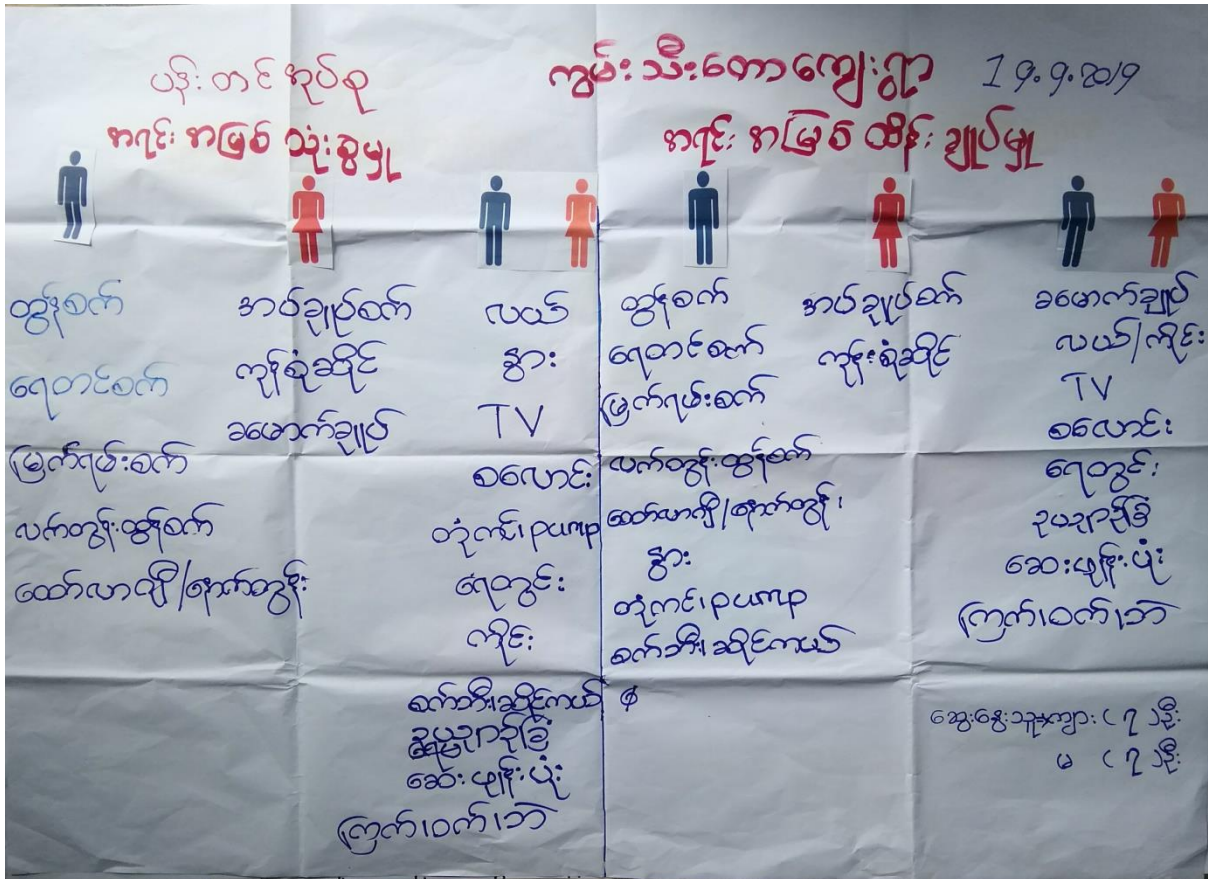 ပန်းတင်အုပ်စု
ကွမ်းသီးတောကျေးရွာ
19.9.2019
အရင်းအမြစ်သုံးစွဲမှု
အရင်းအမြစ်ထိန်းချုပ်မှု
ထွန်စက်
ရေတင်စက်
မြက်ရမ်းစက်
လက်တွန်းထွန်စက်
ထော်လာဂျီ/နောက်တွဲ
အပ်ချုပ်စက်
ကုန်စုံဆိုင်
ခမောက်ချုပ်
လယ်
နွား
TV
စလောင်း
တုံကင်၊ pump
ရေတွင်း
ကိုင်း
စက်ဘီး၊ ဆိုင်ကယ်
ဥယျာဉ်ခြံ
ဆေးဖျန်းပုံး
ကြက်၊ဝက်၊ဘဲ
ထွန်စက်
ရေတင်စက်
မြက်ရမ်းစက်
လက်တွန်းထွန်စက်
ထော်လာဂျီ/နောက်တွဲ၊
နွား
တုံကင်၊ pump
စက်ဘီး၊ ဆိုင်ကယ်
အပ်ချုပ်စက်
ကုန်းစုံဆိုင်
ခမောက်ချုပ်
လယ်/ကိုင်း
TV
စလောင်း
ရေတွင်း
ဥယျာဉ်ခြံ
ဆေးဖျန်းပုံး
ကြက်၊ဝက်၊ဘဲ
ဆွေးနွေးသူ ကျား (၇)ဦး
မ (၇)ဦး